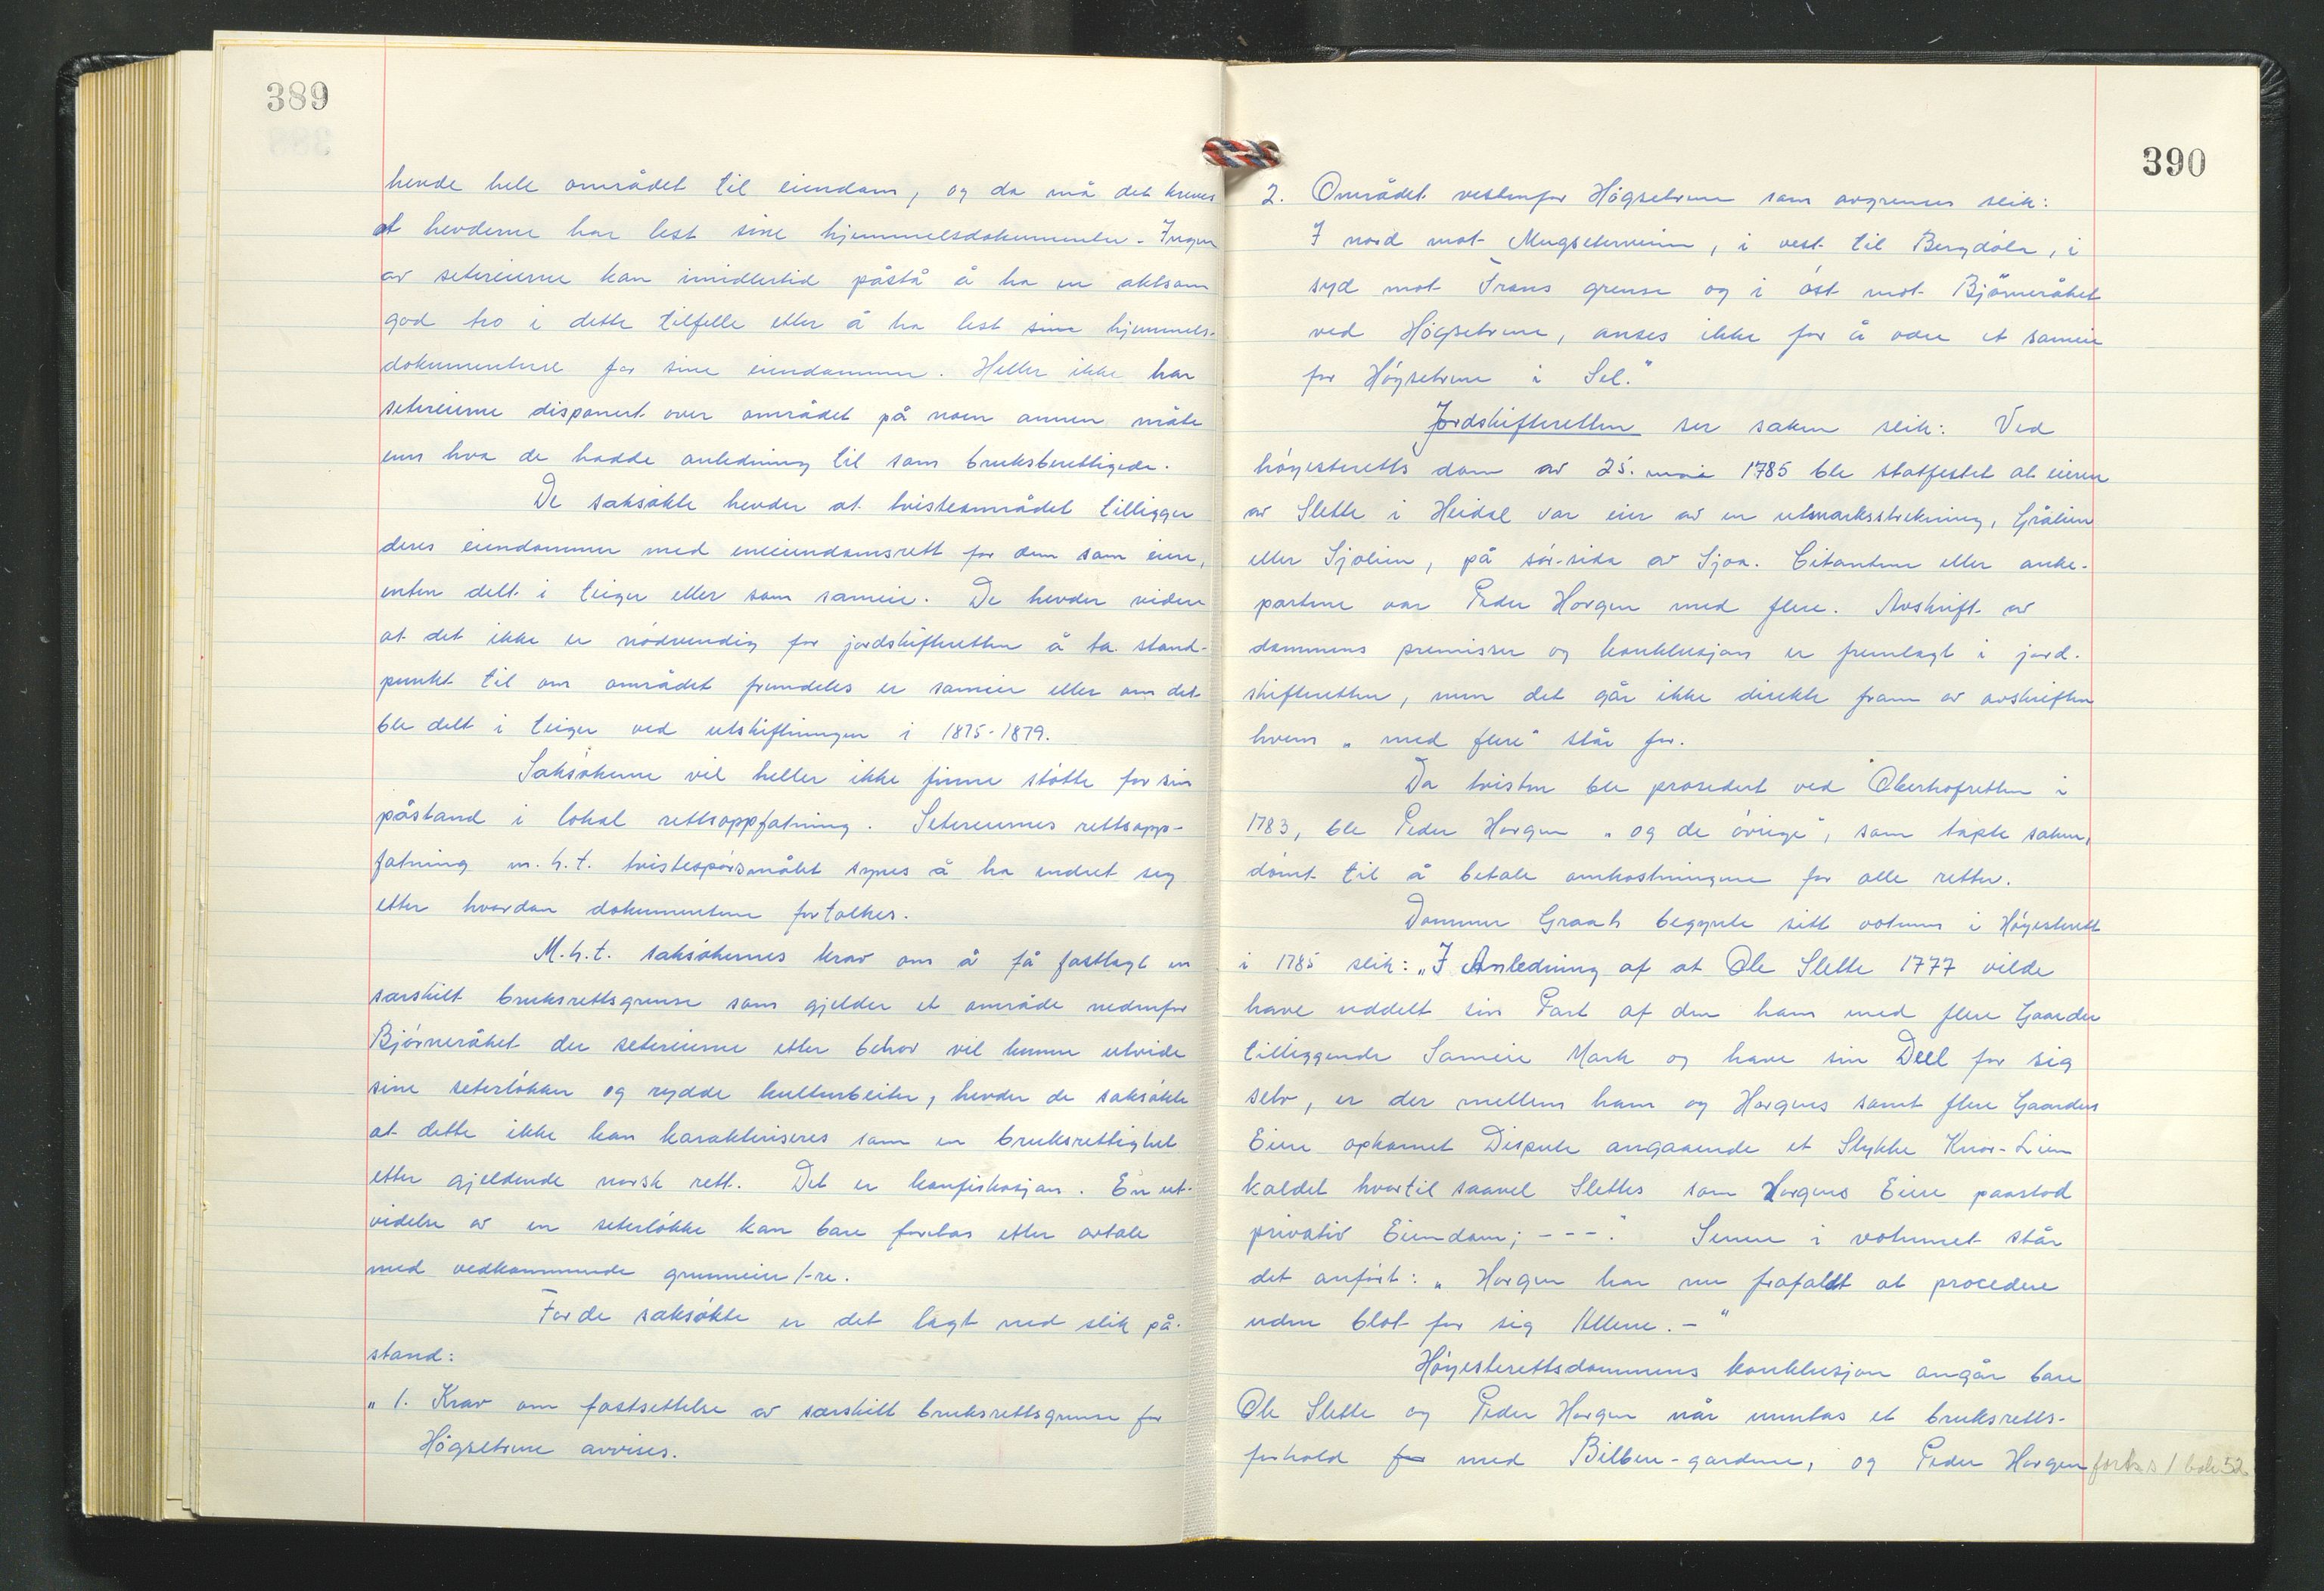 389
hevde hele området til eiendom, og da må det kreves
at hevderne har lest sine hjemmelsdokumenter. Ingen
av setereierne kan imidlertid påstå å ha en aktsom
god tro i dette tilfelle etter å ha lest sine hjemmels-
dokumentene for sine eiendommer. Heller ikke har
setereierne disponert over området på noen annen måte
enn hva de hadde anledning til som bruksberettigede.
De saksøkte hevder at tvisteområdet tilligger
deres eiendommer med eneiendomsrett for dem som eiere,
enten delt i teiger eller som sameie. De hevder videre
at det ikke er nødvendig for jordskifteretten å ta stand-
punkt til om området fremdeles er sameie eller om det
ble delt i teiger ved utskiftningen i 1875-1879.
Saksøkerne vil heller ikke finne støtte for sin
påstand i lokal rettsoppfatning. Setereiernes rettsopp-
fatning m.h.t. tvistespørsmålet synes å ha endret seg
etter hvordan dokumentene fortolkes.
M.h.t. saksøkernes krav om å få fastlagt en
særskilt bruksrettsgrense som gjelder et område nedenfor
Bjørneråket der setereierne etter behov vil kunne utvide
sine seterløkker og rydde kulturbeiter, hevder de saksøkte
at dette ikke kan karakteriseres som en bruksrettighet
etter gjeldende norsk rett. Det er konfiskasjon. En ut-
videlse av en seterløkke kan bare foretas etter avtale
med vedkommende grunneier/-re.
For de saksøkte er det lagt ned slik på-
stand:
"1. Krav om fastsettelse av særskilt bruksrettsgrense for
Høgsetrene avvises.
390
2. Området vestenfor Høgsetrene som avgrenses slik:
I nord mot Mugseterveien, i vest til Bergdøla, i
syd mot Frons grense og i øst mot Bjørneråket
ved Høgsetrene, anses ikke for å være et sameie
for Høgsetrene i Sel."
Jordskifteretten ser saken slik: Ved
høyesteretts dom av 25. mai 1785 ble stadfestet at eieren
av Slette i Heidal var eier av en utmarksstrekning, Grålien
eller Sjolien, på sør-sida av Sjoa. Citantene eller anke-
partene var Peder Horgen med flere. Avskrift av
dommens premisser og konklusjon er fremlagt i jord-
skifteretten, men det går ikke direkte fram av avskriften
hvem "med flere" står for.
Da tvisten ble prosedert ved Oberhofretten i
1783, ble Peder Horgen "og de øvrige", som tapte saken,
dømt til å betale omkostningene for alle retter.
Dommer Graah begynte sitt votum i Høyesterett
i 1785 slik: "I Anledning af at Ole Slette 1777 vilde
have uddelt sin Part af den ham med flere Gaarder
tilliggende Sameie Mark og have sin Deel for sig
selv, er der mellem ham og Horgens samt flere Gaarders
Eiere opkomet Dispute angaaende et Stykke Knor-Lien
kaldet hvortil saavel Slettes som Horgens Eiere paastod
privativ Eiendom; ---." Senere i votumet står
det anført: "Horgen har nu frafaldt at procedere
uden blot for sig Allene.-"
Høyesterettsdommens konklusjon angår bare
Ole Slette og Peder Horgen når unntas et bruksretts-
forhold for med Bilben-gardene, og Peder Horgen forts i bok 52